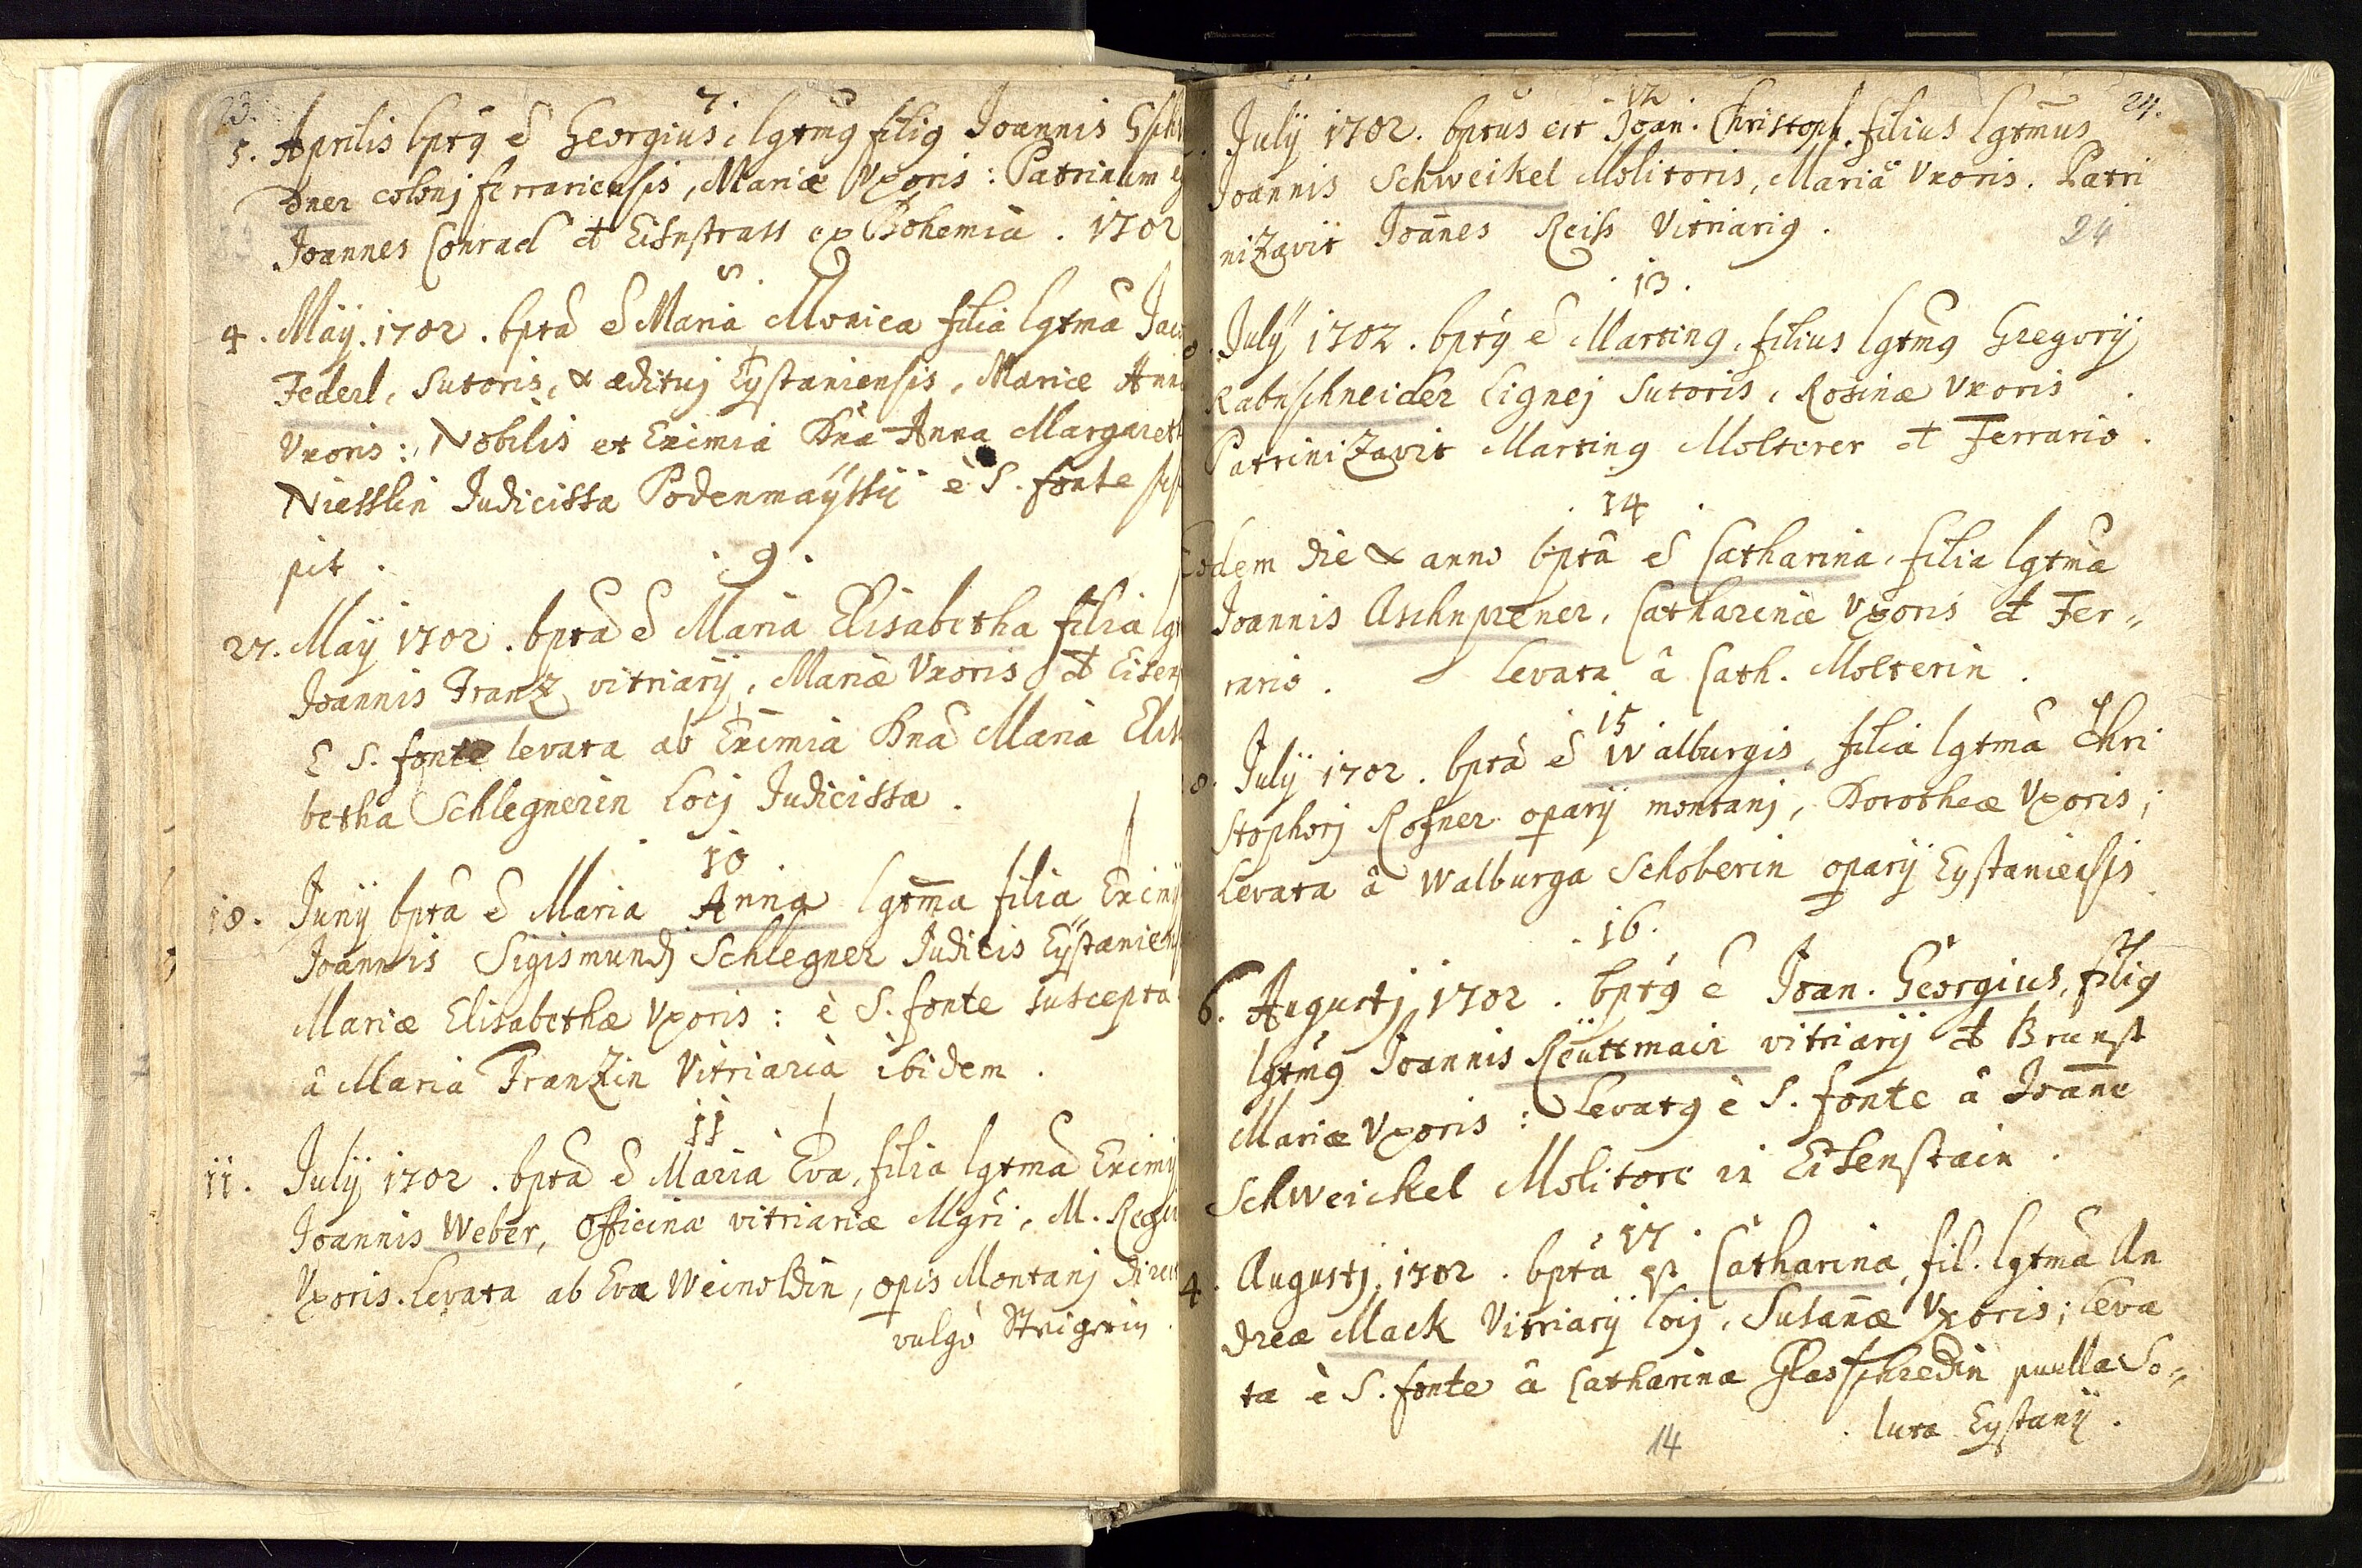 23.
7.
5. Aprilis bptg ẽ Georgius, lgtmg filig Joannis Esch
dner colonj ferrariensis, Mariæ Vxoris: Patrinum
Joannes Conrad et Eisnstrass ex Bohemia. 1702
8.
4. Maÿ. 1702. bpta ẽ Maria Monica filia lgtma Jac
Federl, Sutoris, & ædituj Eystaniensis, Mariæ Ann
Vxoris: Nobilis et Eximia Dna Anna Margareth
Niesslin Judicissa Podenmaÿssÿ è S. fonte sus
pit.
.9.
27. Maÿ 1702. bpta ẽ Maria Elisabetha filia lgt
Joannis Franz vitriarÿ, Mariæ Vxoris et Eisen
E S. fonte levata ab Eximia Dna Maria Elis
betha Schlegnerin locj Judicissa.
10.
18. Junÿ bpta ẽ Maria Anna lgtma filia Eximÿ
Joannis Sigismundj Schlegner Judicis Eÿstaniens
Mariæ Elisabethæ Vxoris: è S. fonte suscepta
â Maria Franzin Vitriaria ibidem.
11
11. Julÿ 1702. bpta ẽ Maria Eva, filia lgtma Eximÿ
Joannis Weber, Officinæ vitriariæ Mgri, M. Regin
Vxoris. levata ab Eva Weinoldin, opis Montanj direct
vulgò Steigerin.
24.
12
Julÿ 1702. bptus est Joan. Christoph. filius lgtmus
Joannis Schweikel Molitoris, Mariæ Vxoris. Patri
nizavit Joañes Reiss Vitriarig.
24
.13.
8. Julÿ 1702. bptg ẽ Marting, filius lgtmg Gregorÿ
Rabnschneider Lignej Sutoris, Rosinæ Vxoris.
Patrinizavit Marting Molterer et Ferrario.
.14.
Eodem die & anno bpta ẽ Catharina, filia lgtma
Joannis Aschnprener, Catharinæ Vxoris et Fer„
rario. Levata â Cath. Molterin.
15
8. Julÿ 1702. bpta ẽ Walburgis, filia lgtma Chri
stophorj Rosner oparÿ montanj, Dorotheæ Vxoris;
levata â Walburga Schoberin oparÿ Eystaniensis.
.16.
6. Augustj 1702. bptg ẽ Joan. Georgius, filig
lgtmg Joannis Reüttmair vitriarÿ et Brunst
Mariæ Vxoris: Levatg è S. fonte â Joañe
Schweickel Molitore in Eisenstain.
17.
4. Augustj. 1702. bpta est Catharina, fil. lgtma An
dreæ Mack Vitriarÿ locj, Susañæ Vxoris; leva
ta è S. fonte â Catharina Glasschredin puella So„
luta Eystanÿ.
14